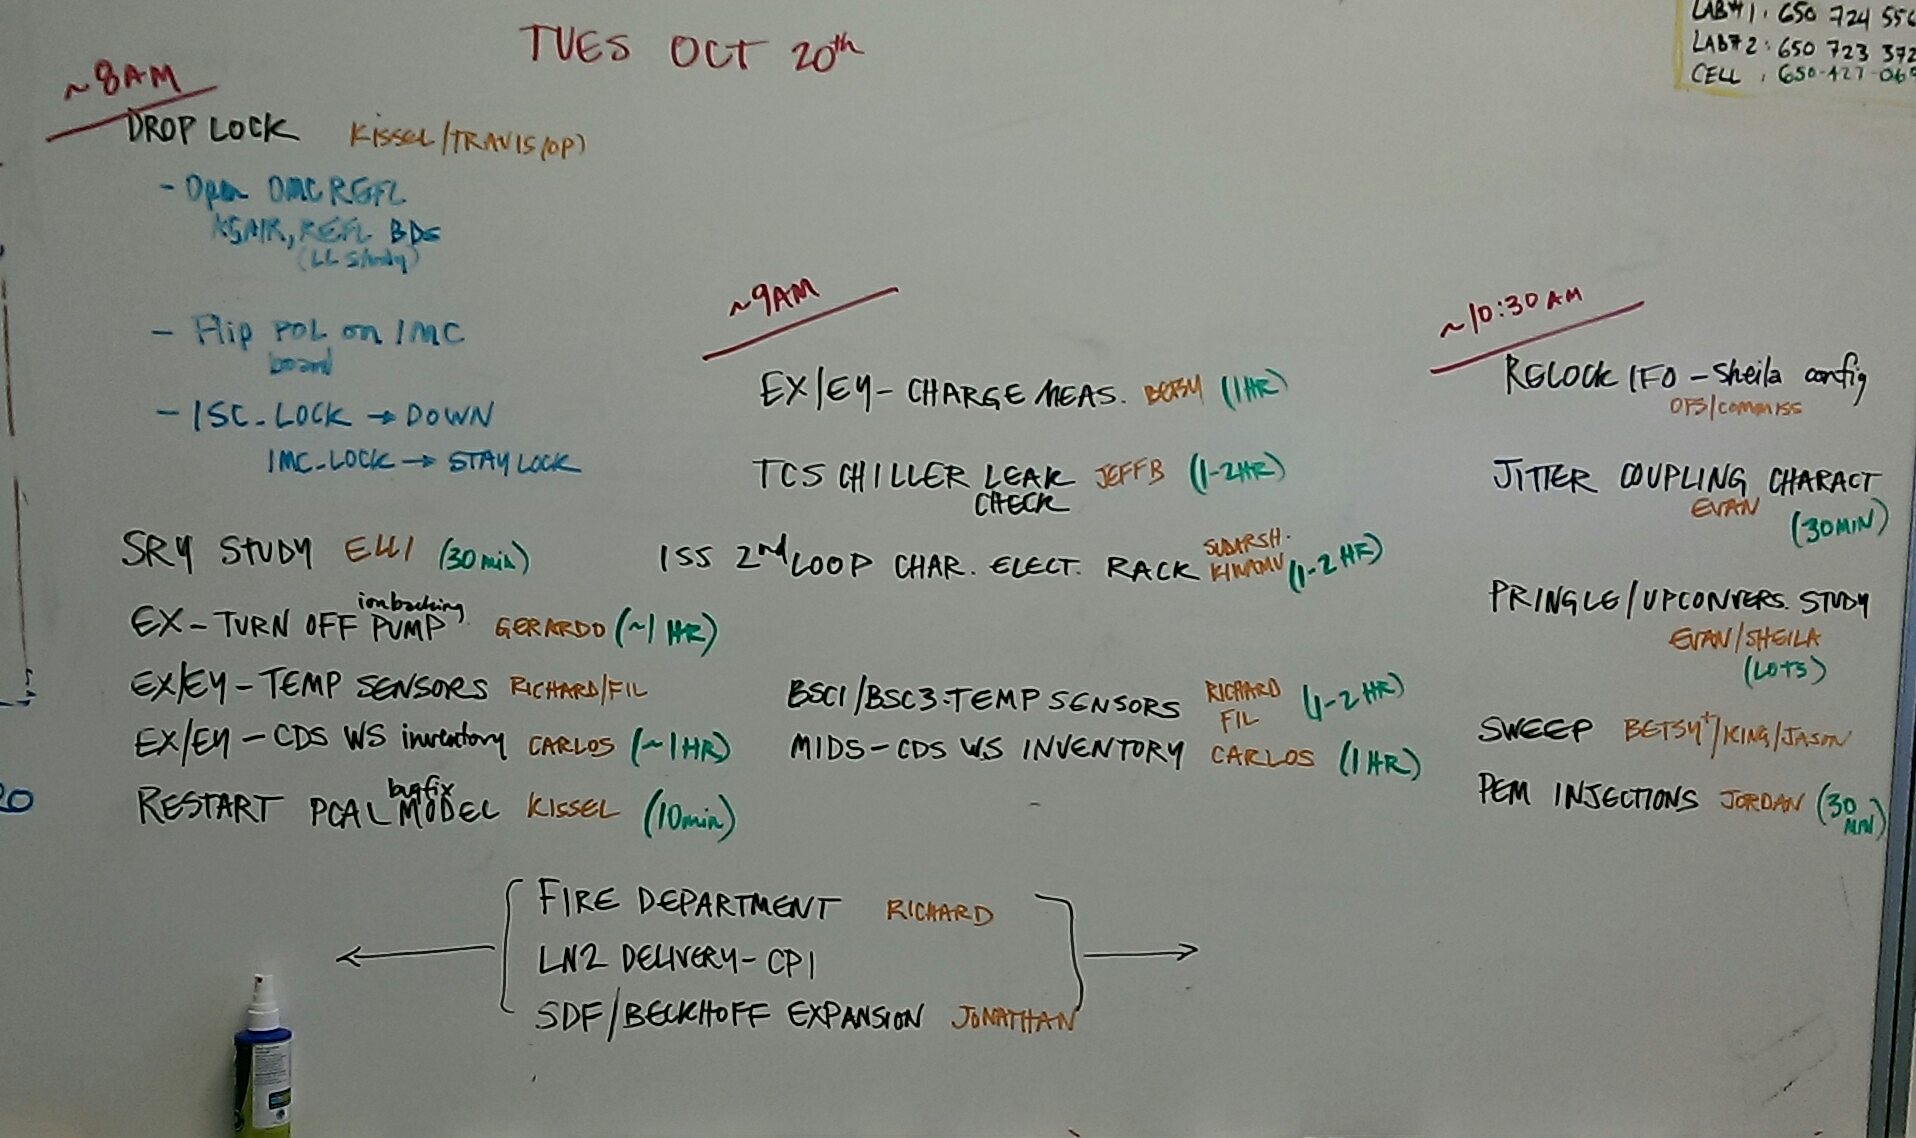 TUES OCT 20th
LAB#1: 650 724
LAB#2: 650 723 372
CELL : 650-427-069
~8AM
DROP LOCK KISSEL/TRAVIS(OP)
- Open OMC REFL
ASAIR, REFL BDs
(LL Study)
- Flip POL on IMC
board
- ISC_LOCK → DOWN
IMC_LOCK → STAY LOCK
SRY STUDY ELLI (30min)
EX - TURN OFF ion backing PUMP GERARDO (~1 HR)
EX/EY - TEMP SENSORS RICHARD/FIL
EX/EY - CDS WS inventory CARLOS (~1HR)
RESTART PCAL bugfix MODEL KISSEL (10min)
~9AM
EX/EY - CHARGE MEAS. BETSY (1HR)
TCS CHILLER LEAK JEFFB (1-2HR)
CHECK
ISS 2nd LOOP CHAR. ELECT. RACK SUDARSH. (1-2 HR)
BSC1/BSC3-TEMP SENSORS RICHARD FIL (1-2 HR)
MIDS - CDS WS INVENTORY CARLOS (1 HR)
~10:30 AM
RELOCK IFO - Sheila config
OPS/commiss
JITTER COUPLING CHARACT
EVAN (30MIN)
PRINGLE/UPCONVERS. STUDY
EVAN/SHEILA
(LOTS)
SWEEP BETSY+/KING/JASON
PEM INJECTIONS JORDAN (30 MIN)
FIRE DEPARTMENT RICHARD
LN2 DELIVERY - CP1
SDF/BECKHOFF EXPANSION JONATHAN
20